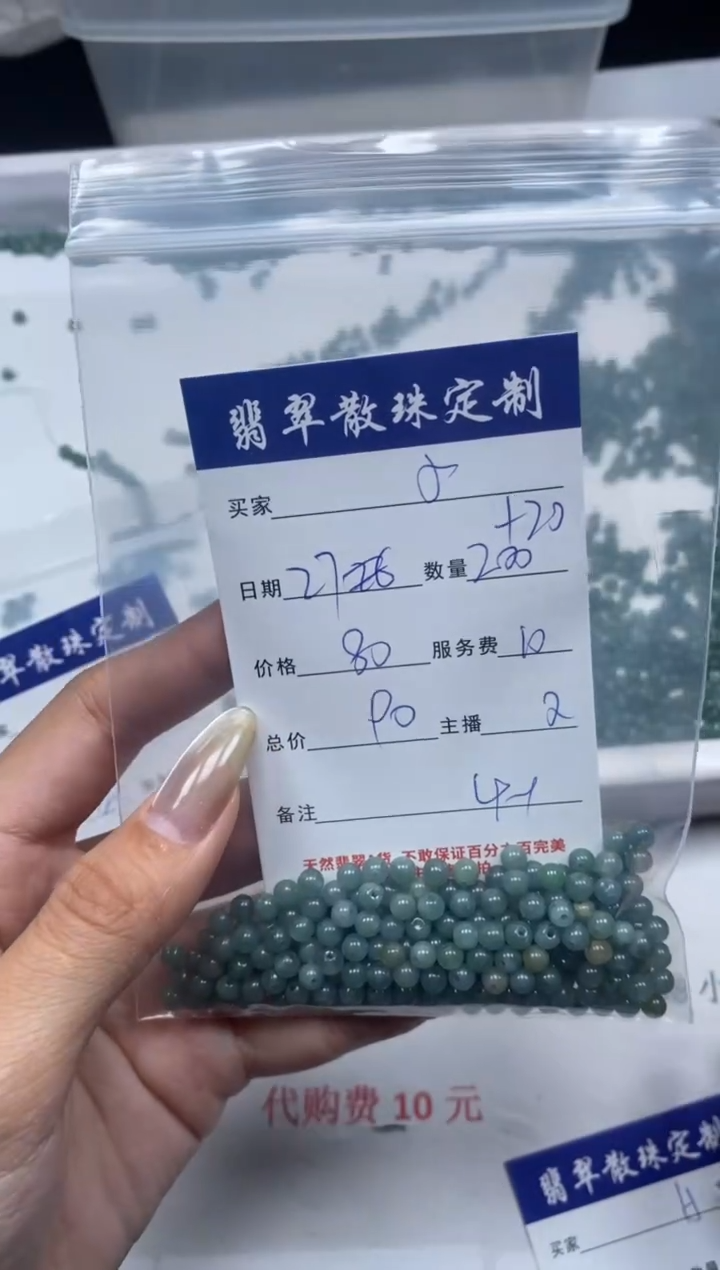 翡翠散珠定制
买家
+20
日期 27 数量 200
价格 80 服务费 10
总价 90 主播 2
备注
天然翡翠A货 不敢保证百分之百完美
拍
翠散珠定制
小
代购费 10 元
翡翠散珠定制
买家